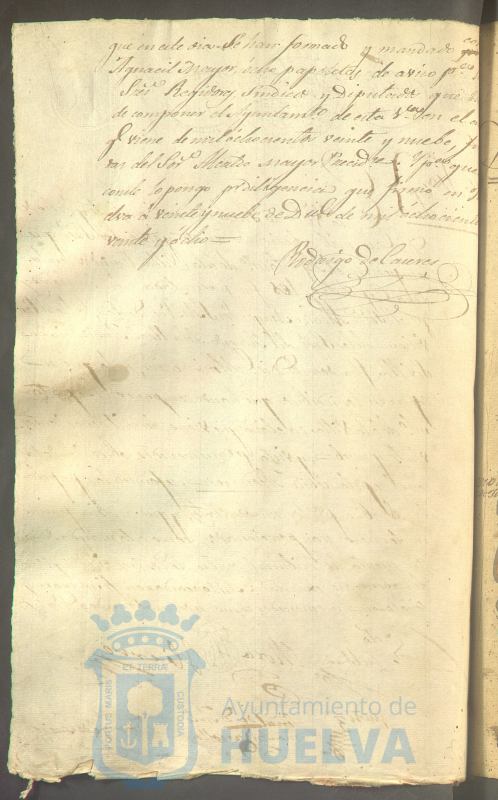 que en este dia se han formado y mandado
Alguacil Mayor, ocho papeletas de aviso pa.
Sres. Regidores Sindico y Diputado que
de componer el Ayuntamto. de esta Va. en el
q. viene de mil ochocientos veinte y nuebe,
del Sor. Alcalde Mayor Preside. Y pa. que
conste lo pongo pr. diligencia que firmo en
a veinte y nuebe de Dicre. de mil ochocientos
veinte y ocho =
Rodrigo de Caceres
PORTUS MARIS
ET TERRÆ
CUSTODIA
Ayuntamiento de
HUELVA